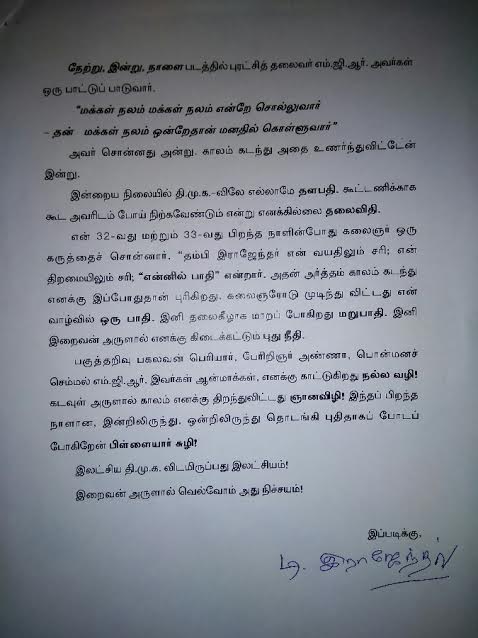 நேற்று, இன்று, நாளை படத்தில் புரட்சித் தலைவர் எம்.ஜி.ஆர். அவர்கள்
ஒரு பாட்டுப் பாடுவார்.
"மக்கள் நலம் மக்கள் நலம் என்றே சொல்லுவார்
– தன் மக்கள் நலம் ஒன்றேதான் மனதில் கொள்ளுவார்"
அவர் சொன்னது அன்று. காலம் கடந்து அதை உணர்ந்துவிட்டேன்
இன்று.
இன்றைய நிலையில் தி.மு.க.-விலே எல்லாமே தளபதி. கூட்டணிக்காக
கூட அவரிடம் போய் நிற்கவேண்டும் என்று எனக்கில்லை தலைவிதி.
என் 32-வது மற்றும் 33-வது பிறந்த நாளின்போது கலைஞர் ஒரு
கருத்தைச் சொன்னார். "தம்பி இராஜேந்தர் என் வயதிலும் சரி; என்
திறமையிலும் சரி; "என்னில் பாதி" என்றார். அதன் அர்த்தம் காலம் கடந்து
எனக்கு இப்போதுதான் புரிகிறது. கலைஞரோடு முடிந்து விட்டது என்
வாழ்வில் ஒரு பாதி. இனி தலைகீழாக மாறப் போகிறது மறுபாதி. இனி
இறைவன் அருளால் எனக்கு கிடைக்கட்டும் புது நீதி.
பகுத்தறிவு பகலவன் பெரியார், பேரறிஞர் அண்ணா, பொன்மனச்
செம்மல் எம்.ஜி.ஆர். இவர்கள் ஆன்மாக்கள், எனக்கு காட்டுகிறது நல்ல வழி!
கடவுள் அருளால் காலம் எனக்கு திறந்துவிட்டது ஞானவிழி! இந்தப் பிறந்த
நாளான, இன்றிலிருந்து, ஒன்றிலிருந்து தொடங்கி புதிதாகப் போடப்
போகிறேன் பிள்ளையார் சுழி!
இலட்சிய தி.மு.க. விடமிருப்பது இலட்சியம்!
இறைவன் அருளால் வெல்வோம் அது நிச்சயம்!
இப்படிக்கு,
டி. இராஜேந்தர்